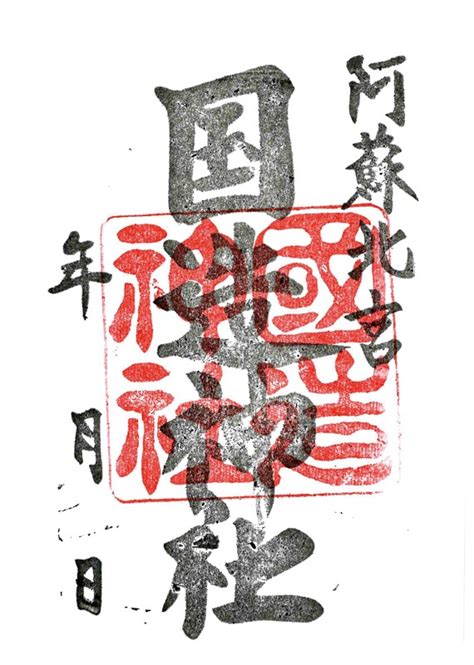 阿蘇北宮
国造神社
國造
神社
年 月 日